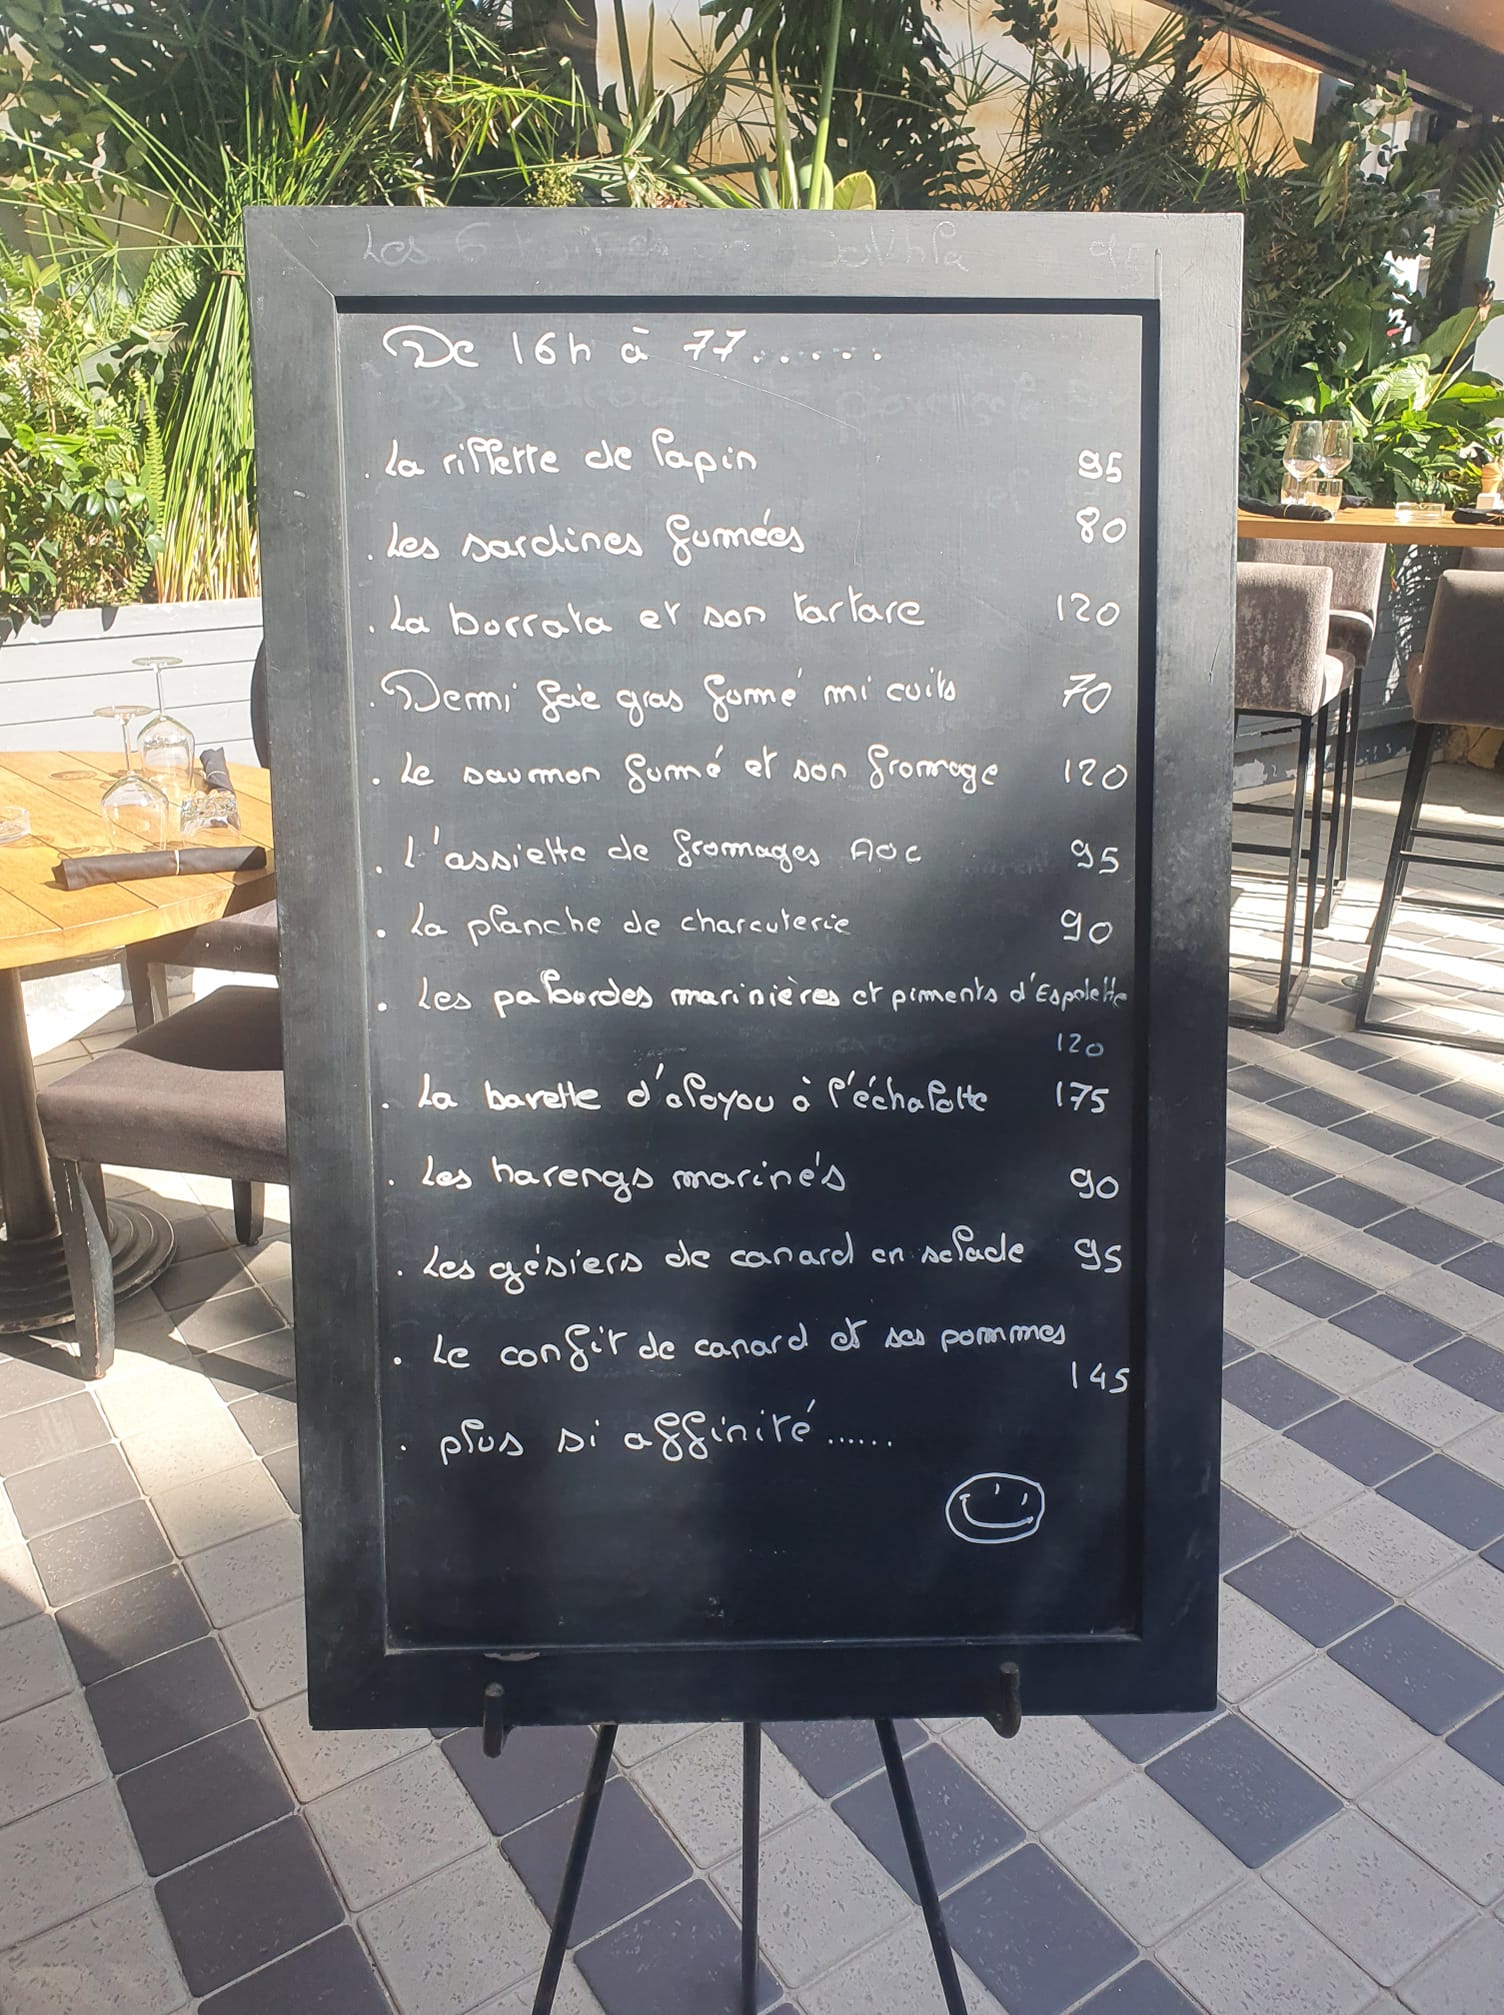 Les 6
De 16h à 77......
. La rillette de lapin 95
. Les sardines fumées 80
. La borrata et son tartare 120
. Demi foie gras fumé mi cuits 70
. Le saumon fumé et son fromage 120
. L'assiette de fromages AOC 95
. La planche de charcuterie 90
. Les palourdes marinières et piments d'Espelette
120
. La bavette d'aloyau à l'échalotte 175
. Les harengs marinés 90
. Les gésiers de canard en salade 95
. Le confit de canard et ses pommes
145
. plus si affinité......